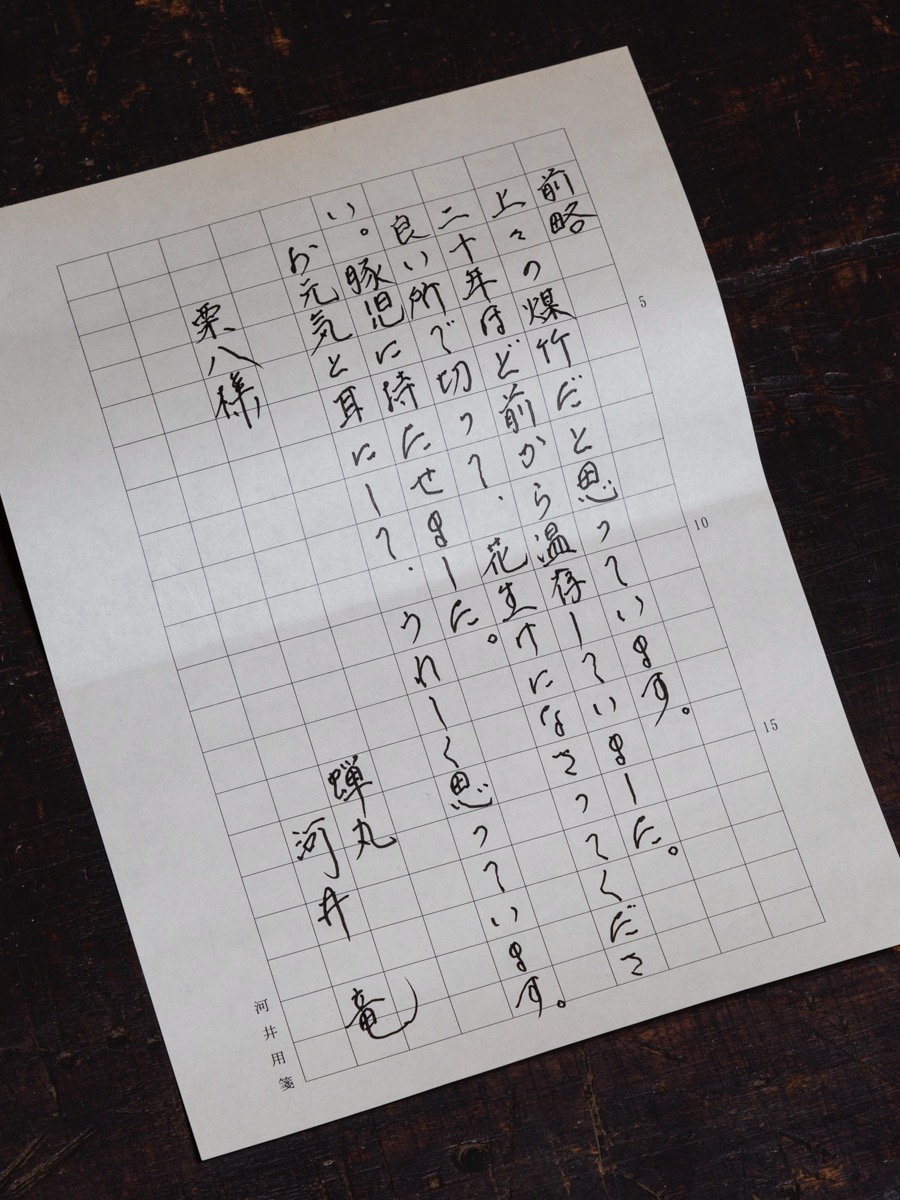 前略
上々の煤竹だと思っています。
二十年ほど前から温存していました。
良い所で切って、花生けになさってくださ
い。豚児に持たせました。
お元気と耳にして、うれしく思っています。
蝉丸
河井 竜
栗八様
5
10
15
河井用箋